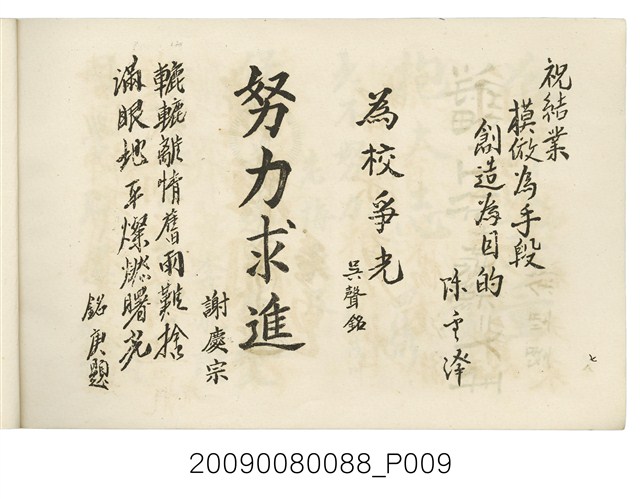 祝結業
模倣為手段
創造為目的
陈重澤
為校爭光
吳聲銘
努力求進
謝慶宗
轆轆離情舊雨難捨
滿眼地平燦燃曙光
銘庚題
七
20090080088_P009